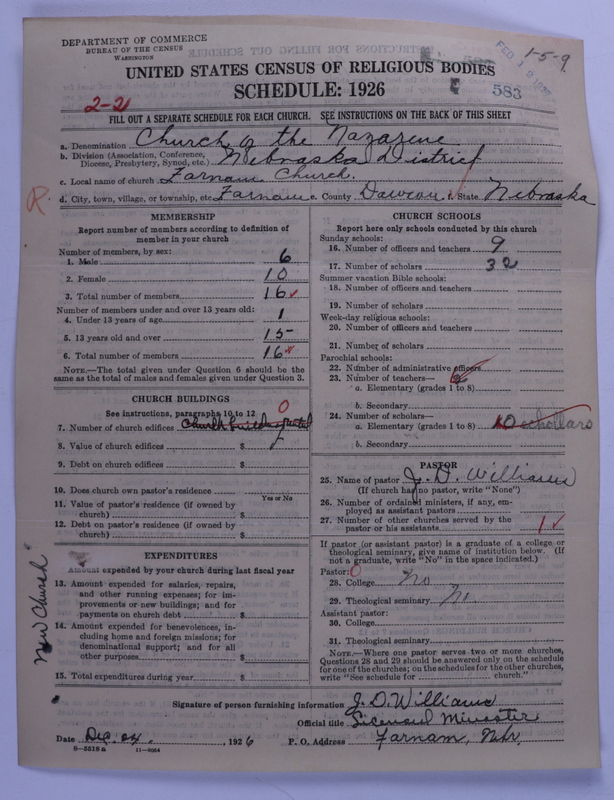 DEPARTMENT OF COMMERCE
BUREAU OF THE CENSUS
WASHINGTON
1-5-9
UNITED STATES CENSUS OF RELIGIOUS BODIES
SCHEDULE: 1926
583
2-21
FILL OUT A SEPARATE SCHEDULE FOR EACH CHURCH. SEE INSTRUCTIONS ON THE BACK OF THIS SHEET
a. Denomination Church of the Nazarene
b. Division (Association, Conference, Diocese, Presbytery, Synod, etc.) Nebraska District
c. Local name of church Farnam Church.
d. City, town, village, or township, etc. Farnam e. County Dawson f. State Nebraska
R.
MEMBERSHIP
Report number of members according to definition of member in your church
Number of members, by sex:
1. Male 6
2. Female 10
3. Total number of members 16
Number of members under and over 13 years old:
4. Under 13 years of age 1
5. 13 years old and over 15
6. Total number of members 16
NOTE.—The total given under Question 6 should be the same as the total of males and females given under Question 3.
CHURCH BUILDINGS
See instructions, paragraphs 10 to 12
7. Number of church edifices Church building rented 0
8. Value of church edifices $
9. Debt on church edifices $
10. Does church own pastor's residence
Yes or No
11. Value of pastor's residence (if owned by church) $
12. Debt on pastor's residence (if owned by church) $
EXPENDITURES
Amount expended by your church during last fiscal year
13. Amount expended for salaries, repairs, and other running expenses; for improvements or new buildings; and for payments on church debt $
14. Amount expended for benevolences, including home and foreign missions; for denominational support; and for all other purposes $
15. Total expenditures during year $
New Church
CHURCH SCHOOLS
Report here only schools conducted by this church
Sunday schools:
16. Number of officers and teachers 9
17. Number of scholars 32
Summer vacation Bible schools:
18. Number of officers and teachers
19. Number of scholars
Week-day religious schools:
20. Number of officers and teachers
21. Number of scholars
Parochial schools:
22. Number of administrative officers
23. Number of teachers—
a. Elementary (grades 1 to 8)
b. Secondary
24. Number of scholars—
a. Elementary (grades 1 to 8) 10 schollars
b. Secondary
PASTOR
25. Name of pastor J. D. Williams
(If church had no pastor, write "None")
26. Number of ordained ministers, if any, employed as assistant pastors
27. Number of other churches served by the pastor or his assistants 1
If pastor (or assistant pastor) is a graduate of a college or theological seminary, give name of institution below. (If not a graduate, write "No" in the space indicated.)
Pastor: 0
28. College No
29. Theological seminary No.
Assistant pastor:
30. College
31. Theological seminary
NOTE.—Where one pastor serves two or more churches, Questions 28 and 29 should be answered only on the schedule for one of the churches; on the schedules for the other churches, write "See schedule for church."
Signature of person furnishing information J. D. Williams
Official title Licensed Minister
Date Dec. 24, 1926 P. O. Address Farnam, Nebr,
8-5518 a 11-9064